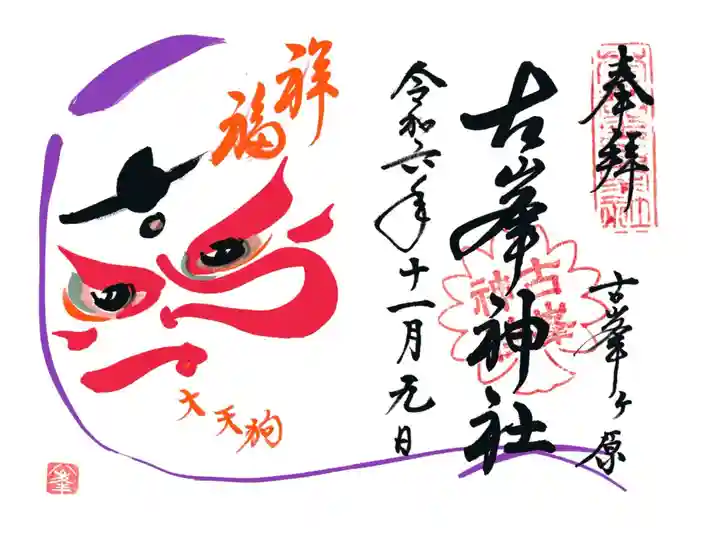 奉拝
古峯ヶ原
古峯神社
令和六年十一月元日
祥福
大天狗
古峯神社